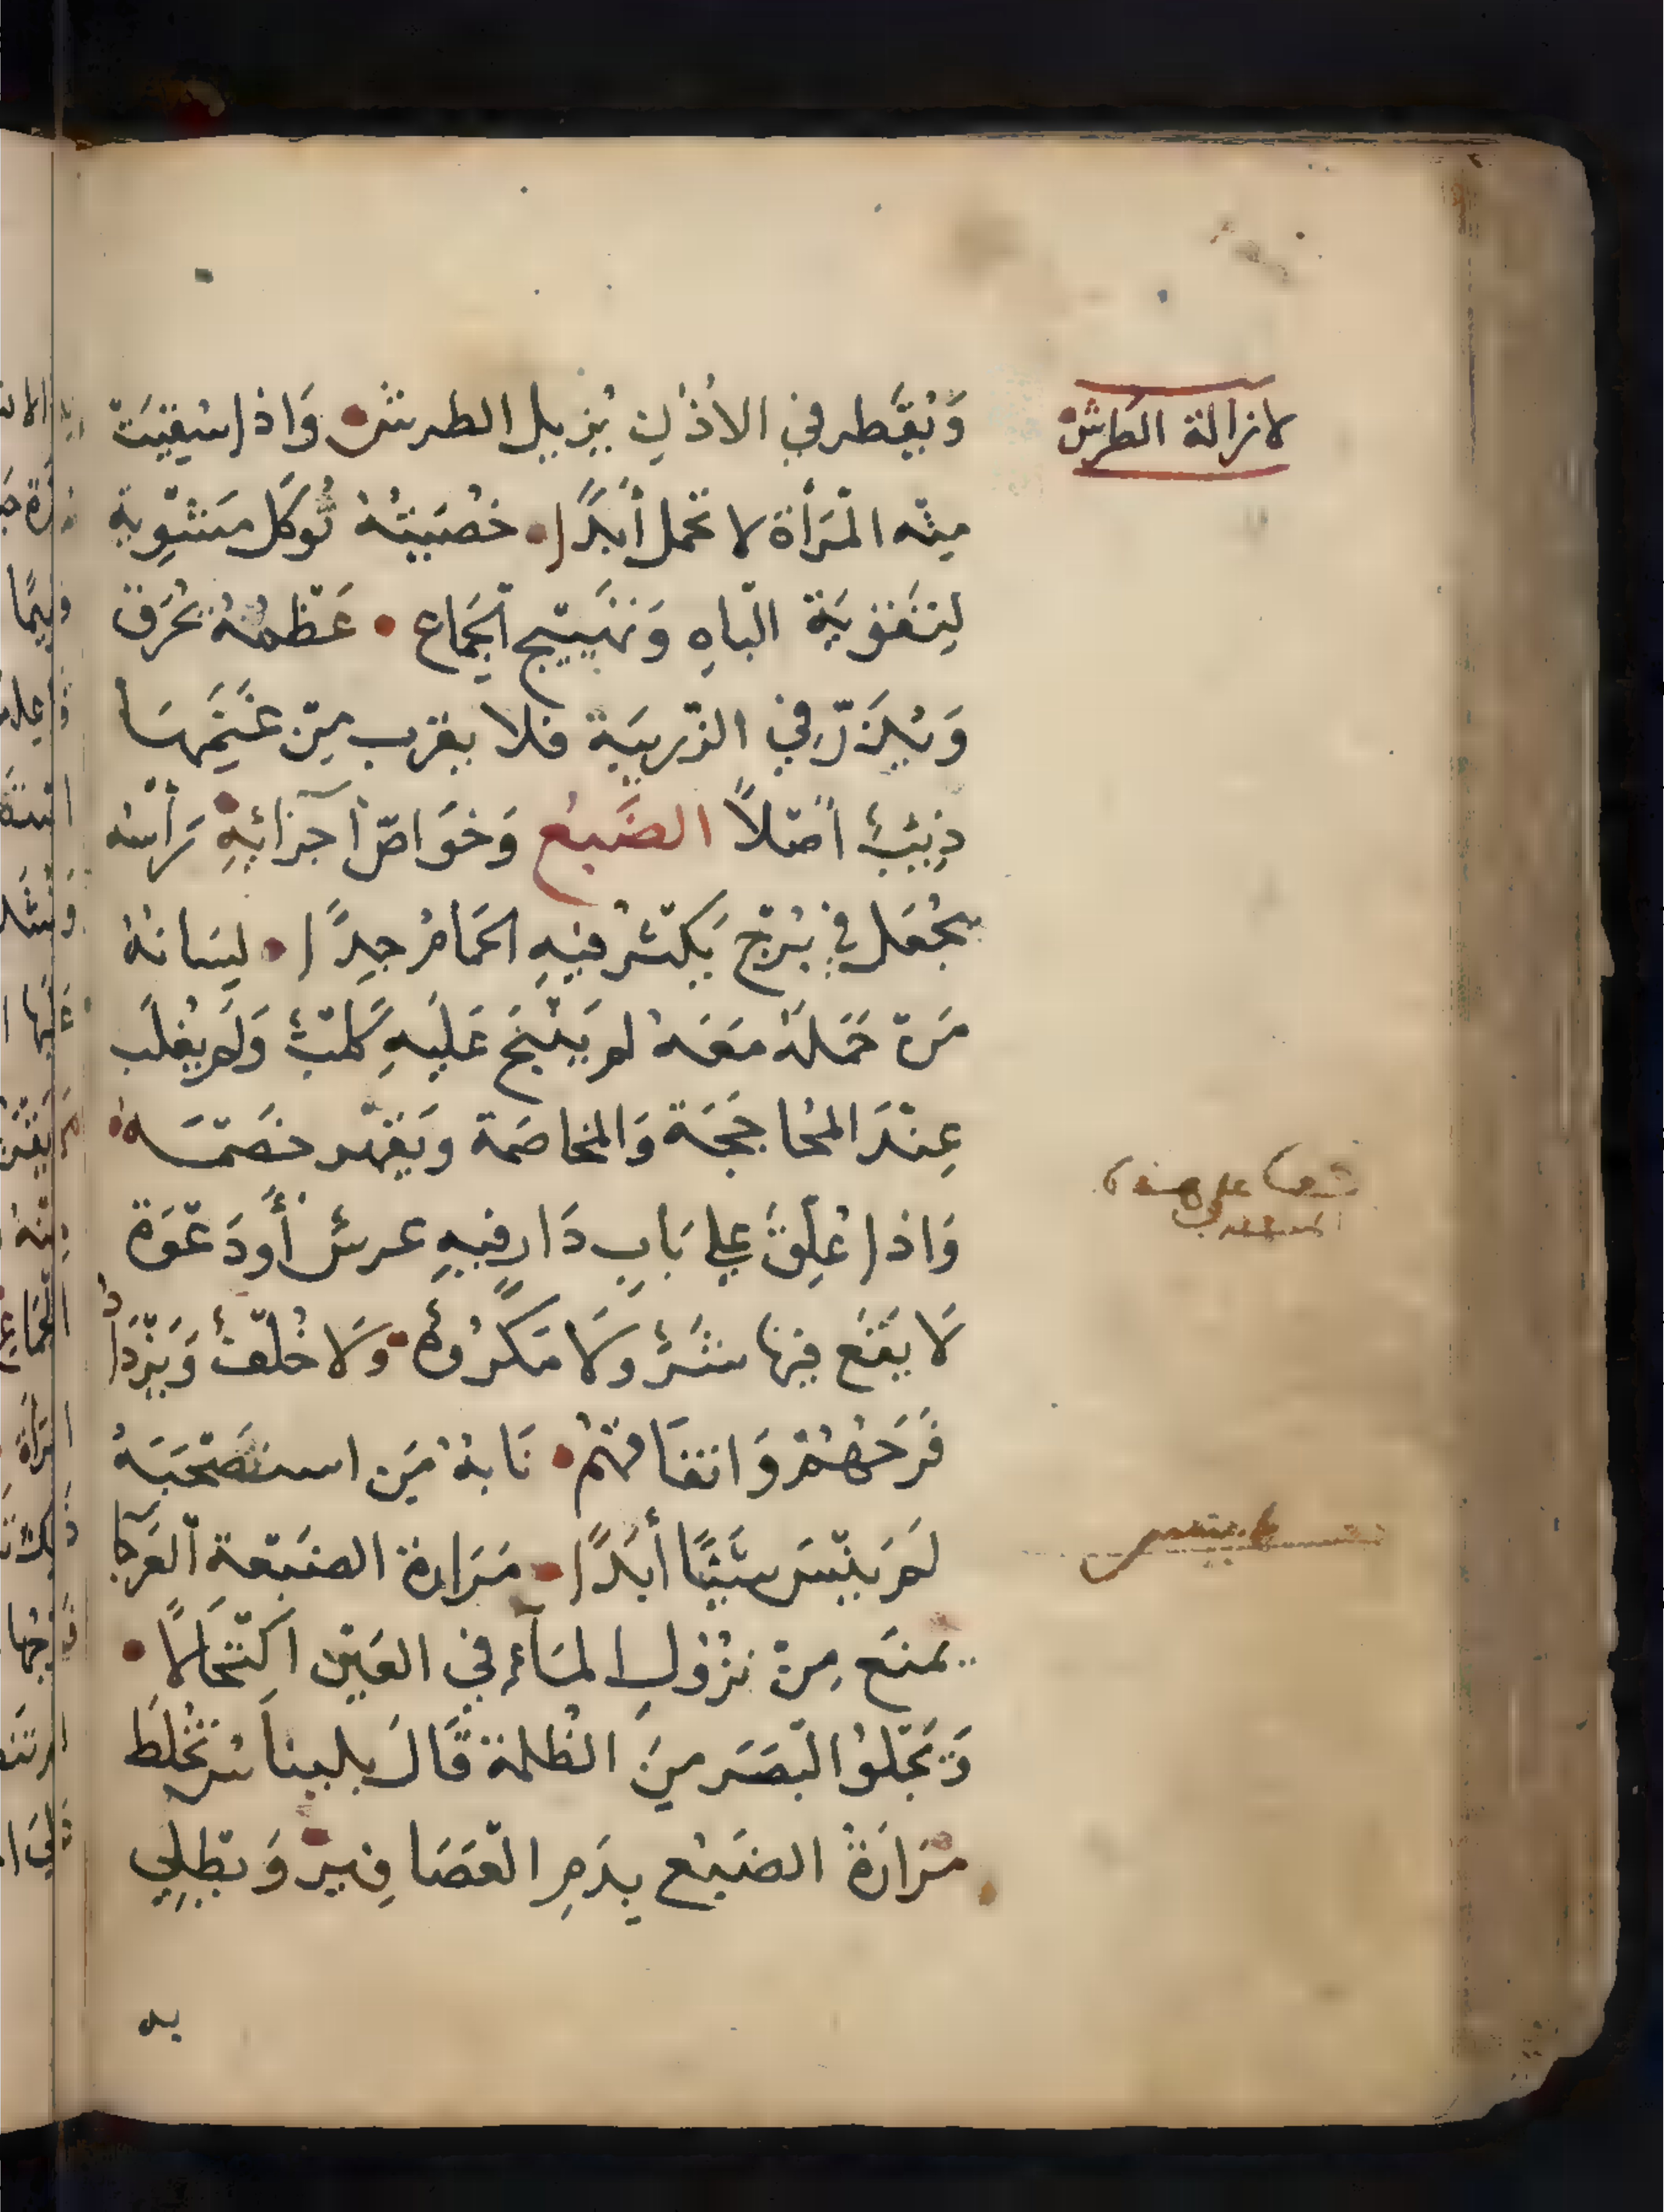 لازالة الطرش
وَيُقَطر في الاُذُنِ يُزيل الطرش وَاذا سُقِيَتْ
مِنْه الْمَرأة لا تحمل أبَدًا خُصْيَتُهُ تُوكَل مَشْوِية
لِتَقْوِيَة الْباهِ وَتَهْيِيج الْجِمَاع عَظْمُهُ يُحْرَق
وَيُذَرّ في الزّرِيبَة فلا يقرب مِنْ غَنَمِهَا
ذِئبٌ أصْلاً الضَبع وَخوَاصّ أجزائِهِ رَأسُه
يُجْعَل في بُرْجٍ يَكثُر فيهِ الحَمَامُ جِدًا لِسَانهُ
مَنْ حَمَلهُ مَعَهُ لم يَنْبَحْ عَلَيهِ كَلبٌ وَلم يُغلَب
عِنْدَ المُحَاجَجَة وَالمخاصَمة ويَقهر خصْمَه
وَاذا عُلِّقَ علي بَابِ دَارٍ فيهِ عرسٌ أو دَعْوَة
لَا يَقَع فِيها شَرٌّ وَلَا مَكرُوهٌ وَلَا خُلْفٌ وَيَزْدَادُ
فَرَحُهُمْ وَاتفَاقهُمْ نَابهُ مَن استَصْحَبَهُ
لَم يَنْسَ شَيْئًا أبَدًا مَرَارة الضَبعة الْعَرجَا
يمنَع مِنْ نزُولِ المَآءِ في العَيْن اكْتحَالًا
وَتَجْلوُ الْبَصَر مِنَ الظلمة قَالَ بليناس تُخْلَط
مَرَارَةُ الضَبُع بِدَمِ الْعَصَافِير وَيطلِي
به